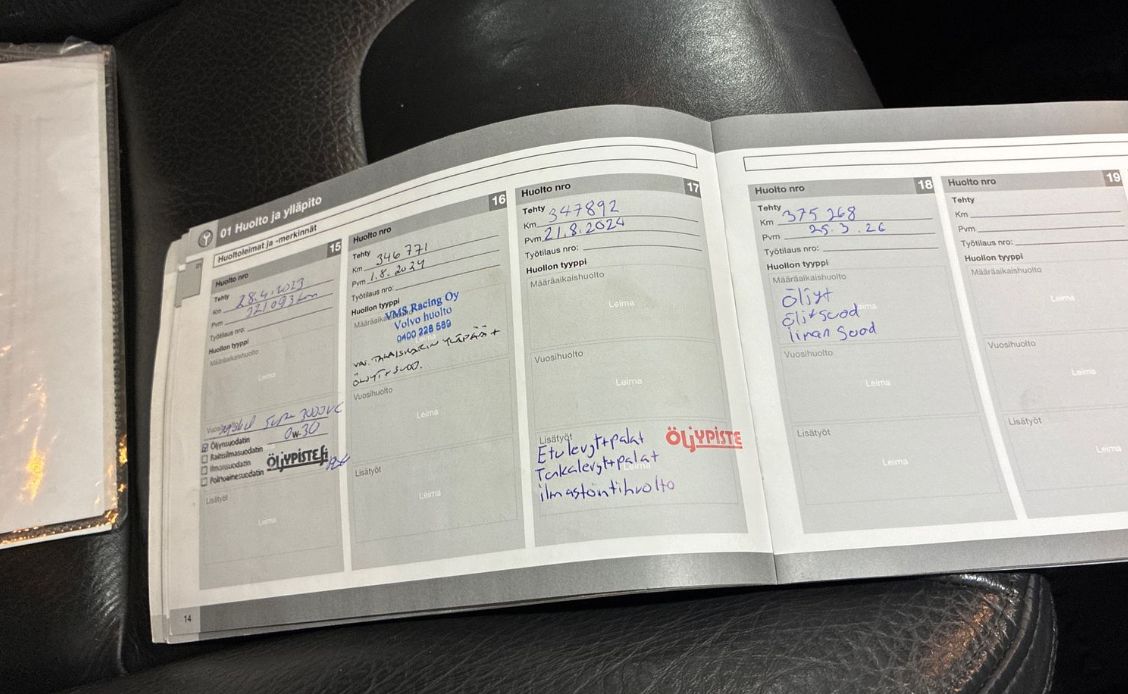 01 Huolto ja ylläpito
Huoltoleimat ja -merkinnät
Huolto nro 15
Tehty 28.4.2023
Km
Pvm
Työtilaus nro:
Huollon tyyppi
Määräaikaishuolto
Leima
0w-30
Öljynsuodatin
Raitisilmasuodatin
Ilmansuodatin
Polttoainesuodatin
ÖLJYPISTE.fi
Lisätyöt
Leima
14
Huolto nro 16
Tehty
Km 346771
Pvm 1.8.2024
Työtilaus nro:
Huollon tyyppi
VMS Racing Oy
Volvo huolto
0400 228 589
ÖLJYT + SUOD.
Vuosihuolto
Leima
Lisätyöt
Leima
Huolto nro 17
Tehty
Km 347892
Pvm 21.8.2024
Työtilaus nro:
Huollon tyyppi
Määräaikaishuolto
Leima
Vuosihuolto
Leima
Lisätyöt
ÖLJYPISTE
Etulevyt+palat
Takalevyt+palat
ilmastointihuolto
Huolto nro 18
Tehty
Km 375 268
Pvm 25.3.26
Työtilaus nro:
Huollon tyyppi
Määräaikaishuolto
Öljyt
Leima
öljysuod
ilman suod
Vuosihuolto
Leima
Lisätyöt
Leima
Huolto nro 19
Tehty
Km
Pvm
Työtilaus nro:
Huollon tyyppi
Määräaikaishuolto
Leima
Vuosihuolto
Leima
Lisätyöt
Leima